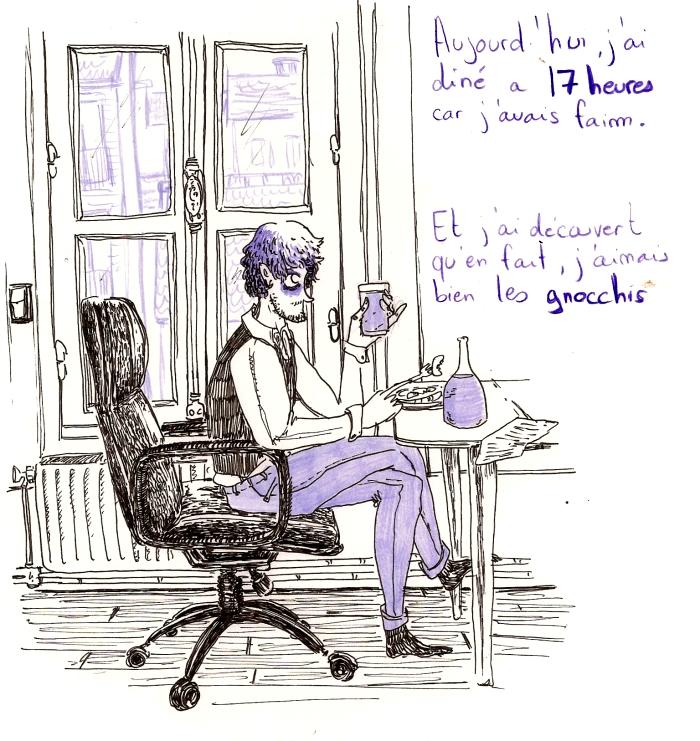 Aujourd'hui, j'ai
diné a 17 heures
car j'avais faim.
Et j'ai découvert
qu'en fait, j'aimais
bien les gnocchis